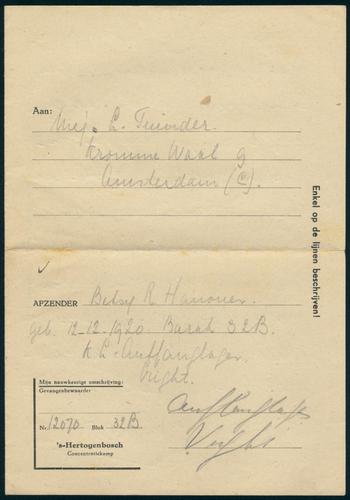 Aan: Mej. L. Tuinder.
Kromme Waal 9
Amsterdam (C).
Enkel op de lijnen beschrijven!
AFZENDER Betsy R Hanover.
geb. 12-12-1920. Barak 32B.
K. L. Auffanglager.
Vught.
Mijn nauwkeurige omschrijving:
Gevangenbewaarder
Nr. 12070 Blok 32B.
's-Hertogenbosch
Concentratiekamp
Auffanglager
Vught